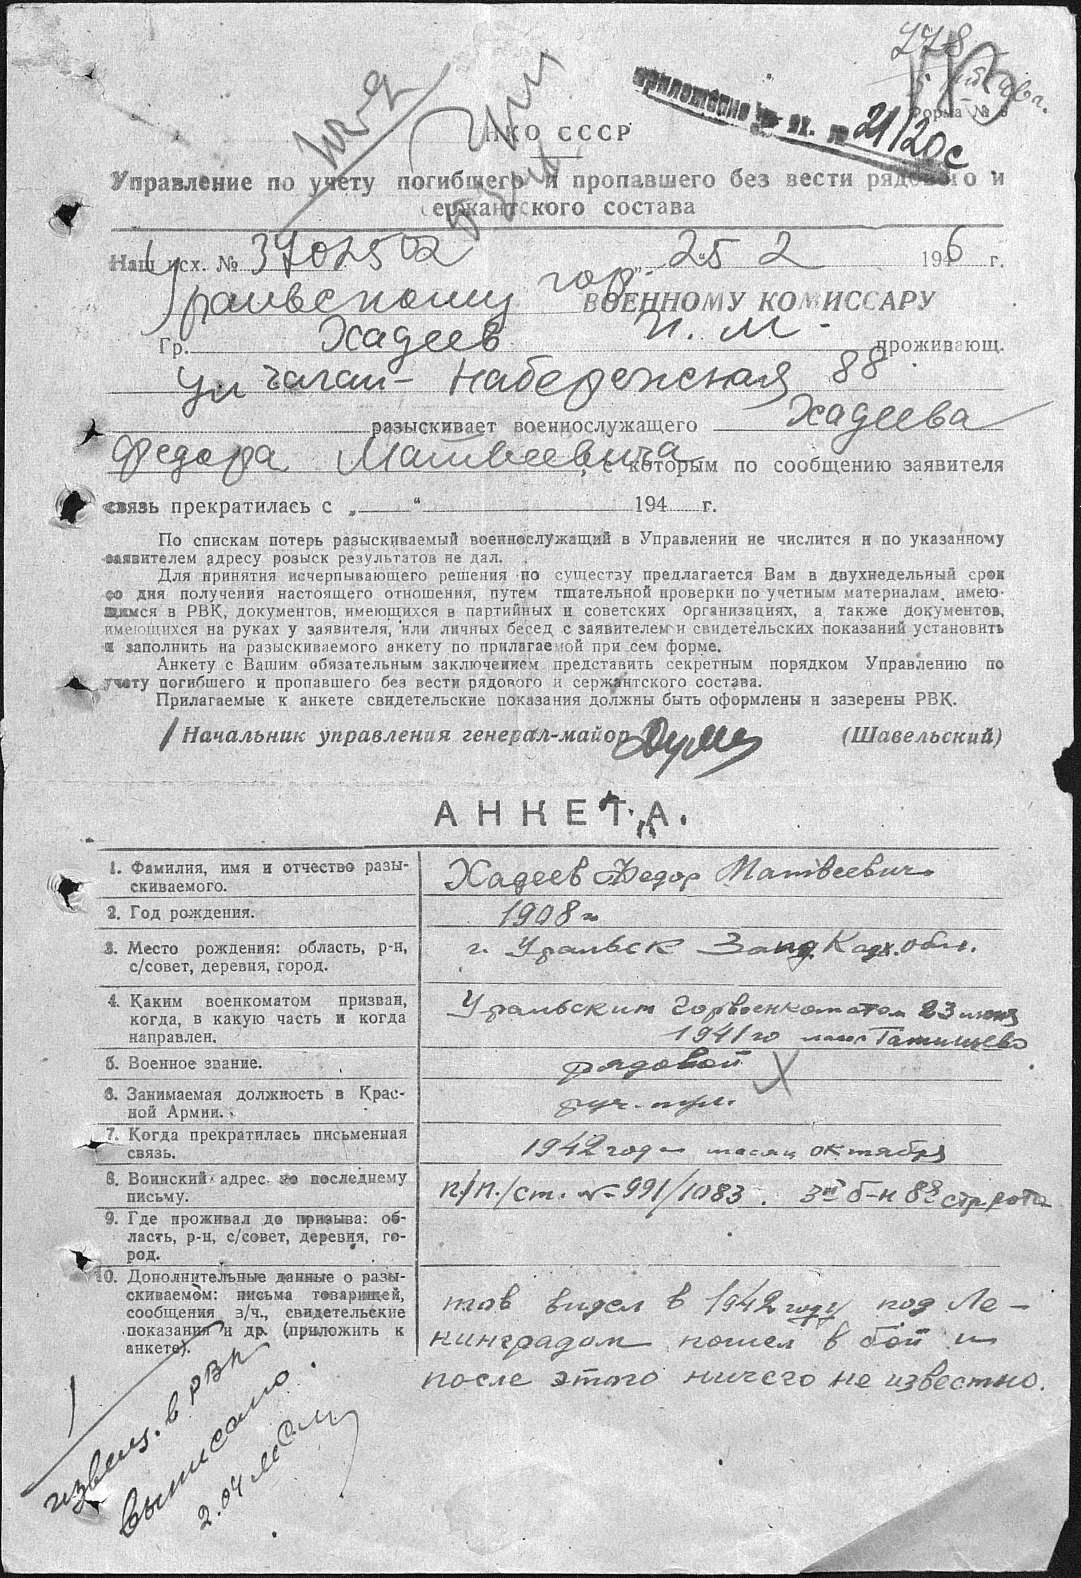 778
Форма № 8
приложение к вх. № 21/20с
НКО СССР
Управление по учету погибшего и пропавшего без вести рядового и
сержантского состава
Наш исх. № 3702502 „ 25 2 1946 г.
Уральскому гор ВОЕННОМУ КОМИССАРУ
Гр. Хадеев И. М. проживающ.
ул Чаган-Набережная 88
разыскивает военнослужащего Хадеева
Федора Матвеевича, с которым по сообщению заявителя
связь прекратилась с „ “ 194 г.
По спискам потерь разыскиваемый военнослужащий в Управлении не числится и по указанному
заявителем адресу розыск результатов не дал.
Для принятия исчерпывающего решения по существу предлагается Вам в двухнедельный срок
со дня получения настоящего отношения, путем тщательной проверки по учетным материалам, имею-
щимся в РВК, документов, имеющихся в партийных и советских организациях, а также документов,
имеющихся на руках у заявителя, или личных бесед с заявителем и свидетельских показаний установить
и заполнить на разыскиваемого анкету по прилагаемой при сем форме.
Анкету с Вашим обязательным заключением представить секретным порядком Управлению по
учету погибшего и пропавшего без вести рядового и сержантского состава.
Прилагаемые к анкете свидетельские показания должны быть оформлены и заверены РВК.
Начальник управления генерал-майор (Шавельский)
АНКЕТА.
1. Фамилия, имя и отчество разы-
скиваемого.
Хадеев Федор Матвеевич
2. Год рождения.
1908 г
3. Место рождения: область, р-н,
с/совет, деревня, город.
г. Уральск Зап. Казх. обл.
4. Каким военкоматом призван,
когда, в какую часть и когда
направлен.
Уральским Горвоенкоматом 23 июня
1941 го Татищево
5. Военное звание.
рядовой
6. Занимаемая должность в Крас-
ной Армии.
7. Когда прекратилась письменная
связь.
1942 году месяц октября
8. Воинский адрес по последнему
письму.
п/п/ст. № 991/1083. 3й б-н 88 стр рота
9. Где проживал до призыва: об-
ласть, р-н, с/совет, деревня, го-
род.
10. Дополнительные данные о разы-
скиваемом: письма товарищей,
сообщения в/ч., свидетельские
показания и др. (приложить к
анкете).
тов видел в 1942 году под Ле-
нинградом пошел в бой и
после этого ничего не известно.
извещ. в РВК
выписано
2.04